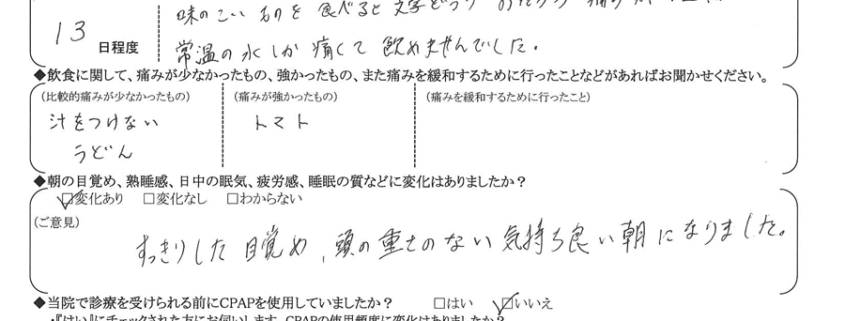 味のこい ものを 食べると文字どうり
13
日程度
常温の水しか痛くて 飲めませんでした。
◆飲食に関して、痛みが少なかったもの、強かったもの、また痛みを緩和するために行ったことなどがあればお聞かせください。
(比較的痛みが少なかったもの) (痛みが強かったもの) (痛みを緩和するために行ったこと)
汁をつけない トマト
うどん
◆朝の目覚め、熟睡感、日中の眠気、疲労感、睡眠の質などに変化はありましたか？
☑変化あり □変化なし □わからない
(ご意見)
すっきりした目覚め、頭の重さのない気持ち良い朝になりました。
◆当院で診療を受けられる前にCPAPを使用していましたか？ □はい ☑いいえ
・『はい』にチェックされた方にお伺いします。CPAPの使用頻度に変化はありましたか？